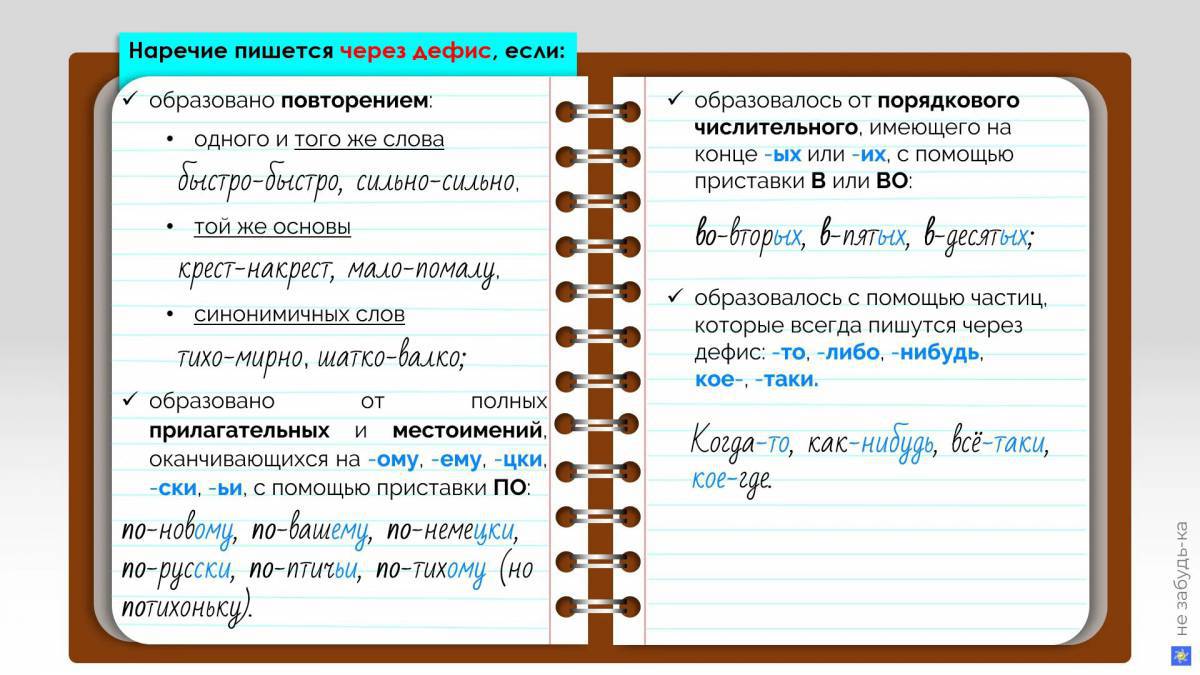 Наречие пишется через дефис, если:
✓ образовано повторением:
• одного и того же слова
быстро-быстро, сильно-сильно,
• той же основы
крест-накрест, мало-помалу,
• синонимичных слов
тихо-мирно, шатко-валко;
✓ образовано от полных
прилагательных и местоимений,
оканчивающихся на -ому, -ему, -цки,
-ски, -ьи, с помощью приставки ПО:
по-новому, по-вашему, по-немецки,
по-русски, по-птичьи, по-тихому (но
потихоньку).
✓ образовалось от порядкового
числительного, имеющего на
конце -ых или -их, с помощью
приставки В или ВО:
во-вторых, в-пятых, в-десятых;
✓ образовалось с помощью частиц,
которые всегда пишутся через
дефис: -то, -либо, -нибудь,
кое-, -таки.
Когда-то, как-нибудь, всё-таки,
кое-где.
не забудь-ка